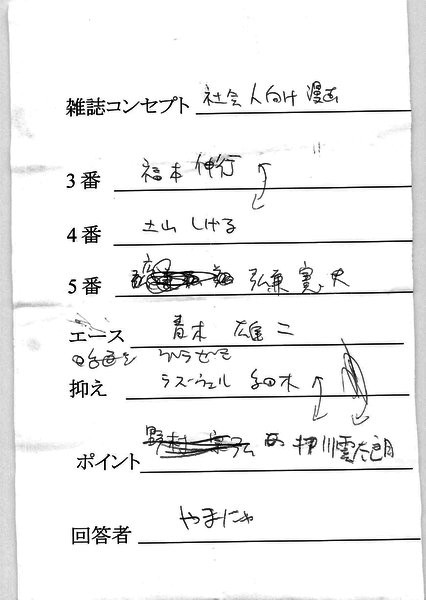 雑誌コンセプト 社会人向け漫画
3番 福本伸行
4番 土山しげる
5番 弘兼憲史
エース 青木雄二
抑え ラズウェル細木
ポイント
回答者 やまにゃ